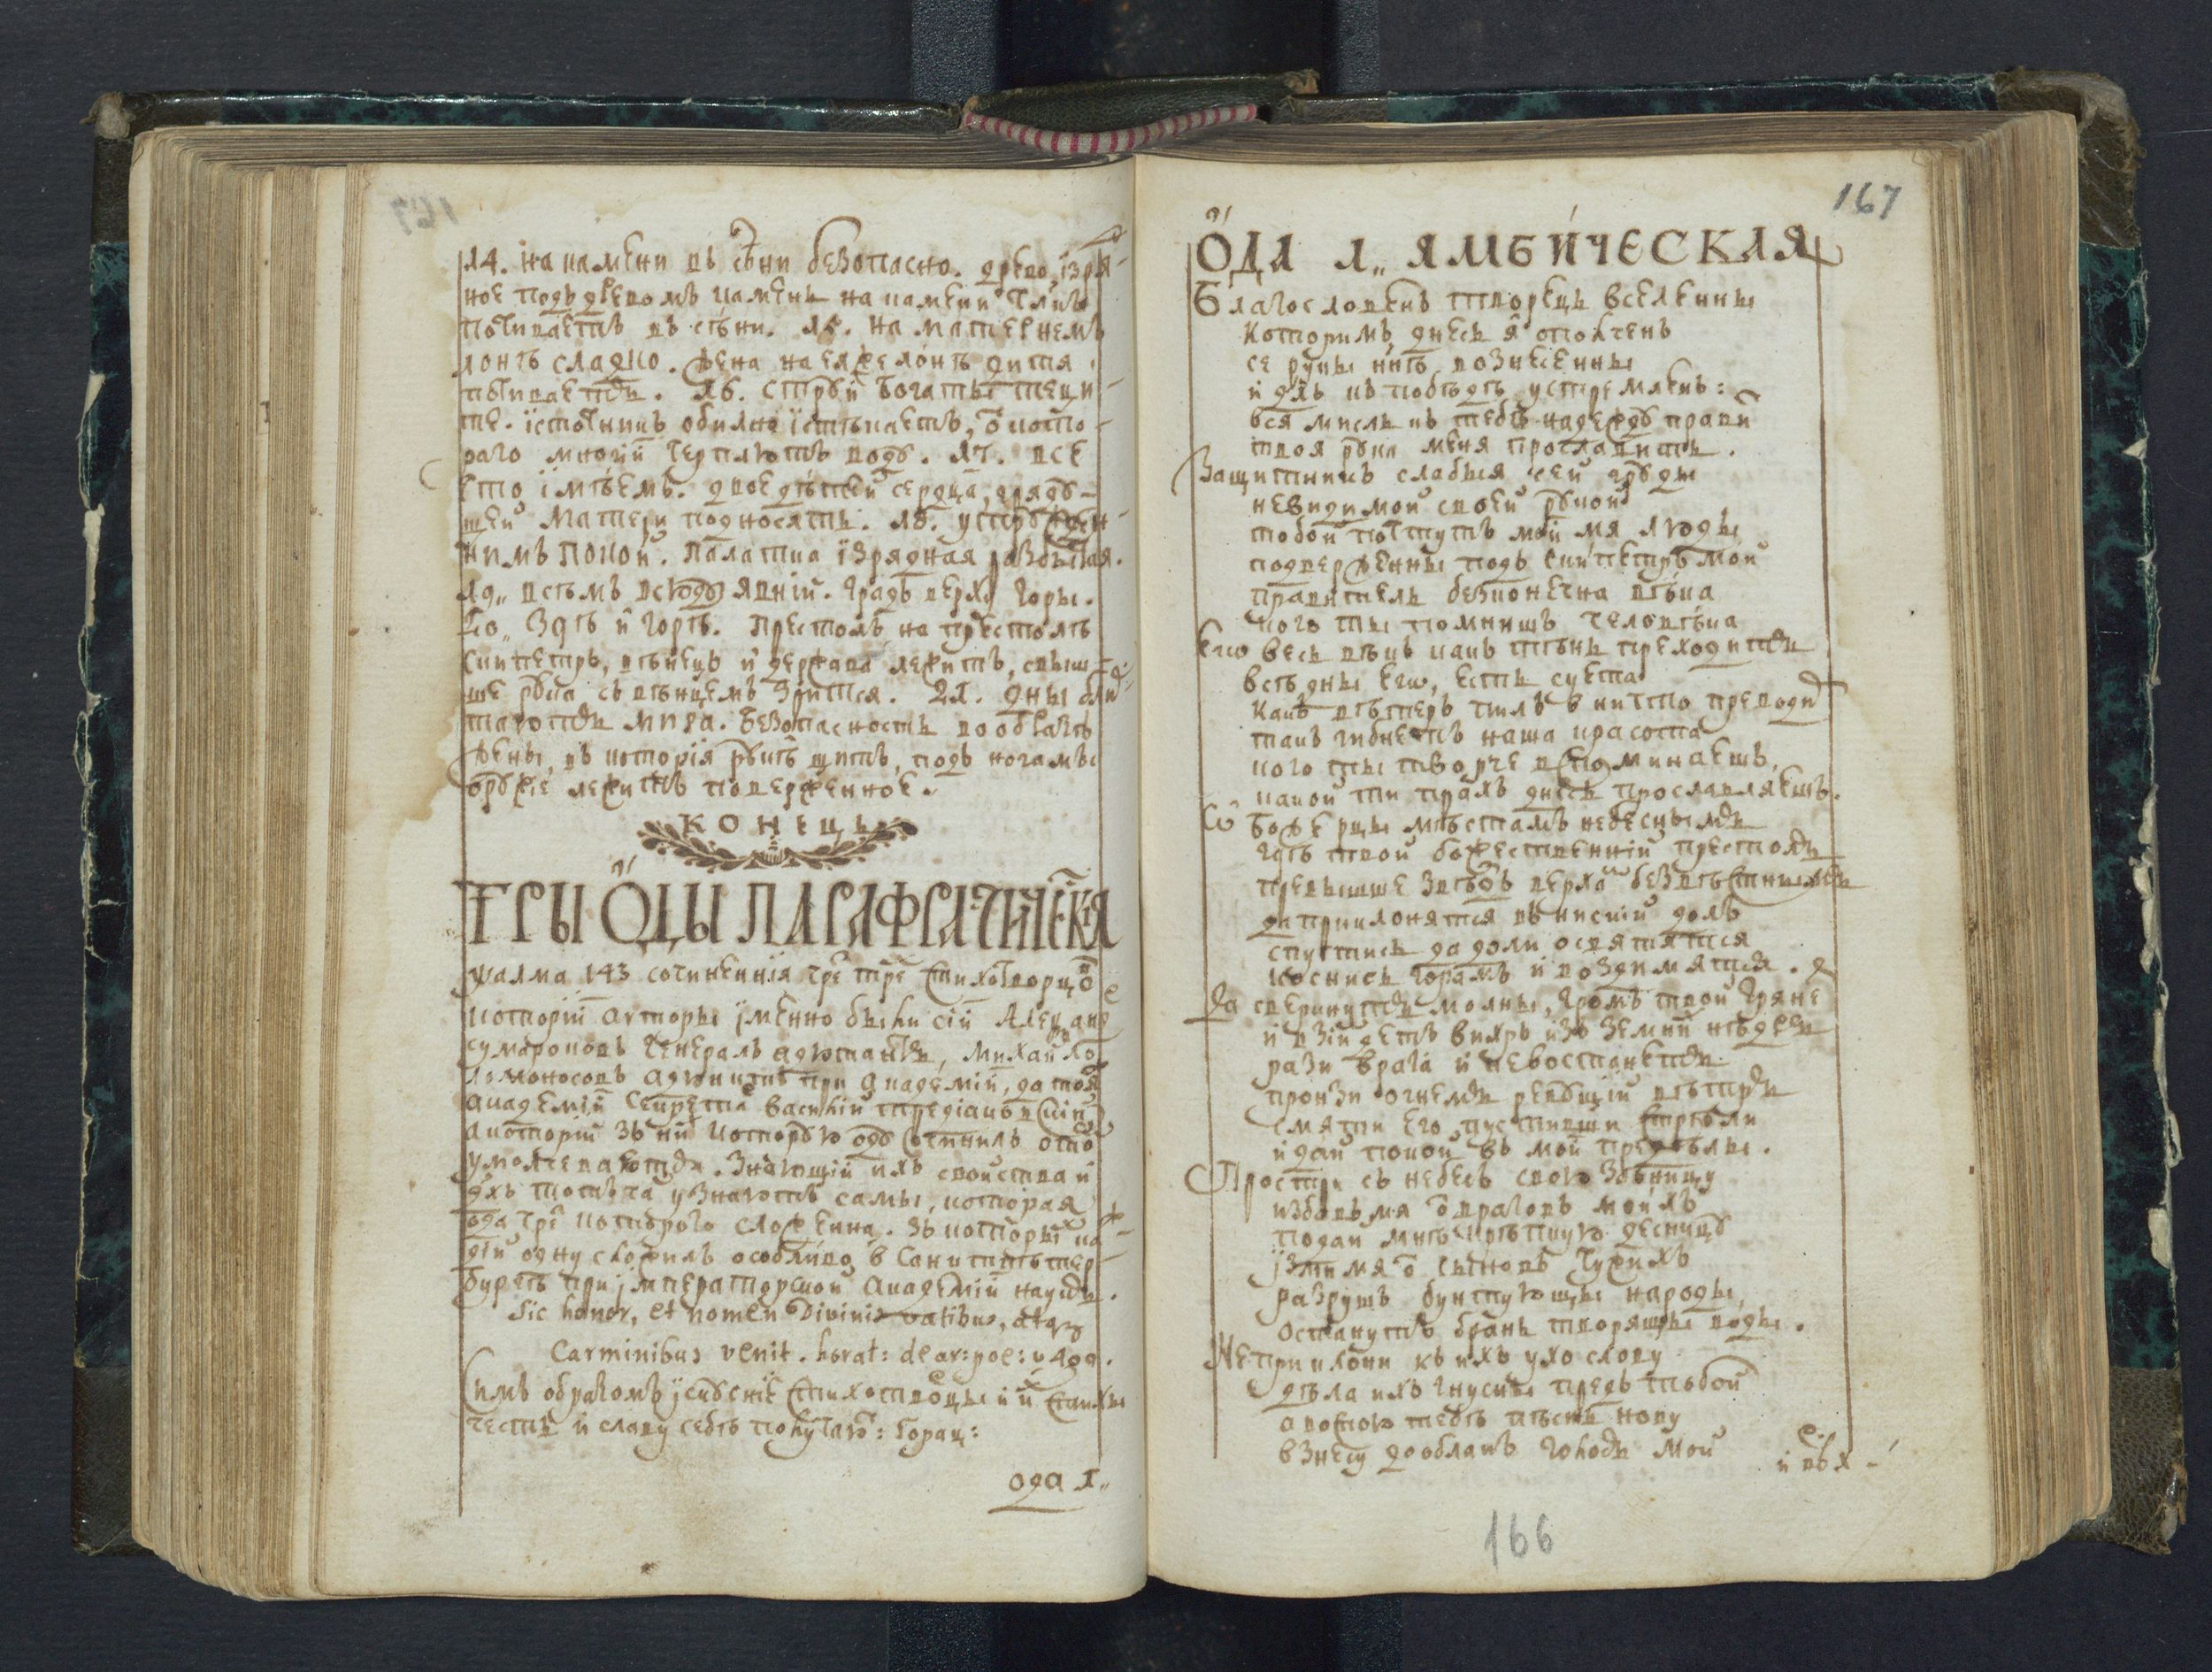 14. на камени въ сѣни безопасно. древо ізря-
ное подъ древомъ камень на камени члвкъ
почиваетъ въ сѣни. 15. на матернемъ
лонѣ сладко. жена на еяже лонѣ дитя
почиваетъ. 16. струи богаты теци-
те. істочникъ обилно істѣкаетъ, ѿ кото-
раго многіи черплютъ воду. 17. все
что імѣемъ. двое дѣтей сердца, грядѹ-
щей матери подносятъ. 18. утрѹжден-
нимъ покой. палатка ізрядная разбытая.
19„ всѣмъ всюдѹ явній. градъ верху горы.
20„ здѣ и горѣ. престолъ на престолѣ
скипетръ, вѣнецъ и держава лежитъ, свыш-
ше рѹка съ вѣнцемъ зрится. 21. дны бли-
таютъ мира. безопасность во образѣ
жены, въ которія рѹкѣ щитъ, подъ ногамы
орѹжіе лежитъ поверженное.
КОНЕЦЪ
ТРЫ ОДЫ ПАРАФРАСТИЧЕСКІЯ
ѱалма 143 сочиненія чрез трех стихотворцов
которіи авторы іменно были сіи Александ
сумароковъ генералъ адютантъ, михайло
ломоносовъ адюнктъ при академіи, да тоя
академіи секретар василій тредіаковскій
а которій зъ них которѹю одѹ сочинилъ ото
умолчеваютъ. знающіи ихъ свойства и
дхъ тотчасъ узнаютъ самы, которая
ода чрез которого сложенна. зъ которых каж-
дій одну сложилъ особливо в санктпѣтер-
бургѣ при імператорской академіи наукъ.
Sic honor, et nomen Divinis vatibus, atq3
Carminibus venit. horat: de ar: poe: v 400.
симъ образомъ іскѹсніе стихотворцы и их стихы
честь и славу себѣ получают: горац:
ода 1„
167
ОДА 1„ ЯМБИЧЕСКАЯ
Благословенъ творецъ вселенны
которимъ днесь я ополченъ
се руцы нинѣ вознесенны
и дхъ къ побѣдѣ устремленъ:
вся мисль къ тебѣ надеждѹ правит
твоя рѹка меня прославитъ.
Защитникъ слабыя сей грѹды
невидимой своей рѹкой
тобой почтутъ мой мя люды
подверженны подъ скипетръ мой
правитель безконечна вѣка
кого ты помнишъ человѣка
Его весь вѣкъ какъ тѣнь преходитъ
всѣ дны его, есть суета
какъ вѣтеръ пилъ в ничто преводит
такъ гибнетъ наша красота
кого ты творче вспоминаешъ,
какой ти прахъ днесь прославляешъ.
Ѡ боже рцы мѣстамъ небеснымъ
гдѣ твой божественній престолъ
превышше звѣздъ верхам безвѣстнымъ
да приклонятся въ нискій долъ
спустись да доли освятятся
коснись горамъ и воздимятся.
Да сверкнутъ молны, громъ твой грянет
и взійдетъ вихръ изъ земній нѣдръ
рази врага и невостанетъ
пронзи огнемъ ревѹщій вѣтръ
смяти его пустивши стрѣли
и дай покой въ мои предѣлы.
Простри съ небесъ свою зѣницу
избавь мя ѿ враговъ моихъ
подай мнѣ крѣпкую десницѹ
ізтми мя ѿ сыновъ чужихъ
разрушъ бунтующы народы,
останутъ брань творящы воды.
Неприклони къ ихъ ухо слову
дѣла ихъ гнусны предъ тобой
а воспою тебѣ пѣснь нову
взнесу дооблакъ голосъ мой
и въх-
166